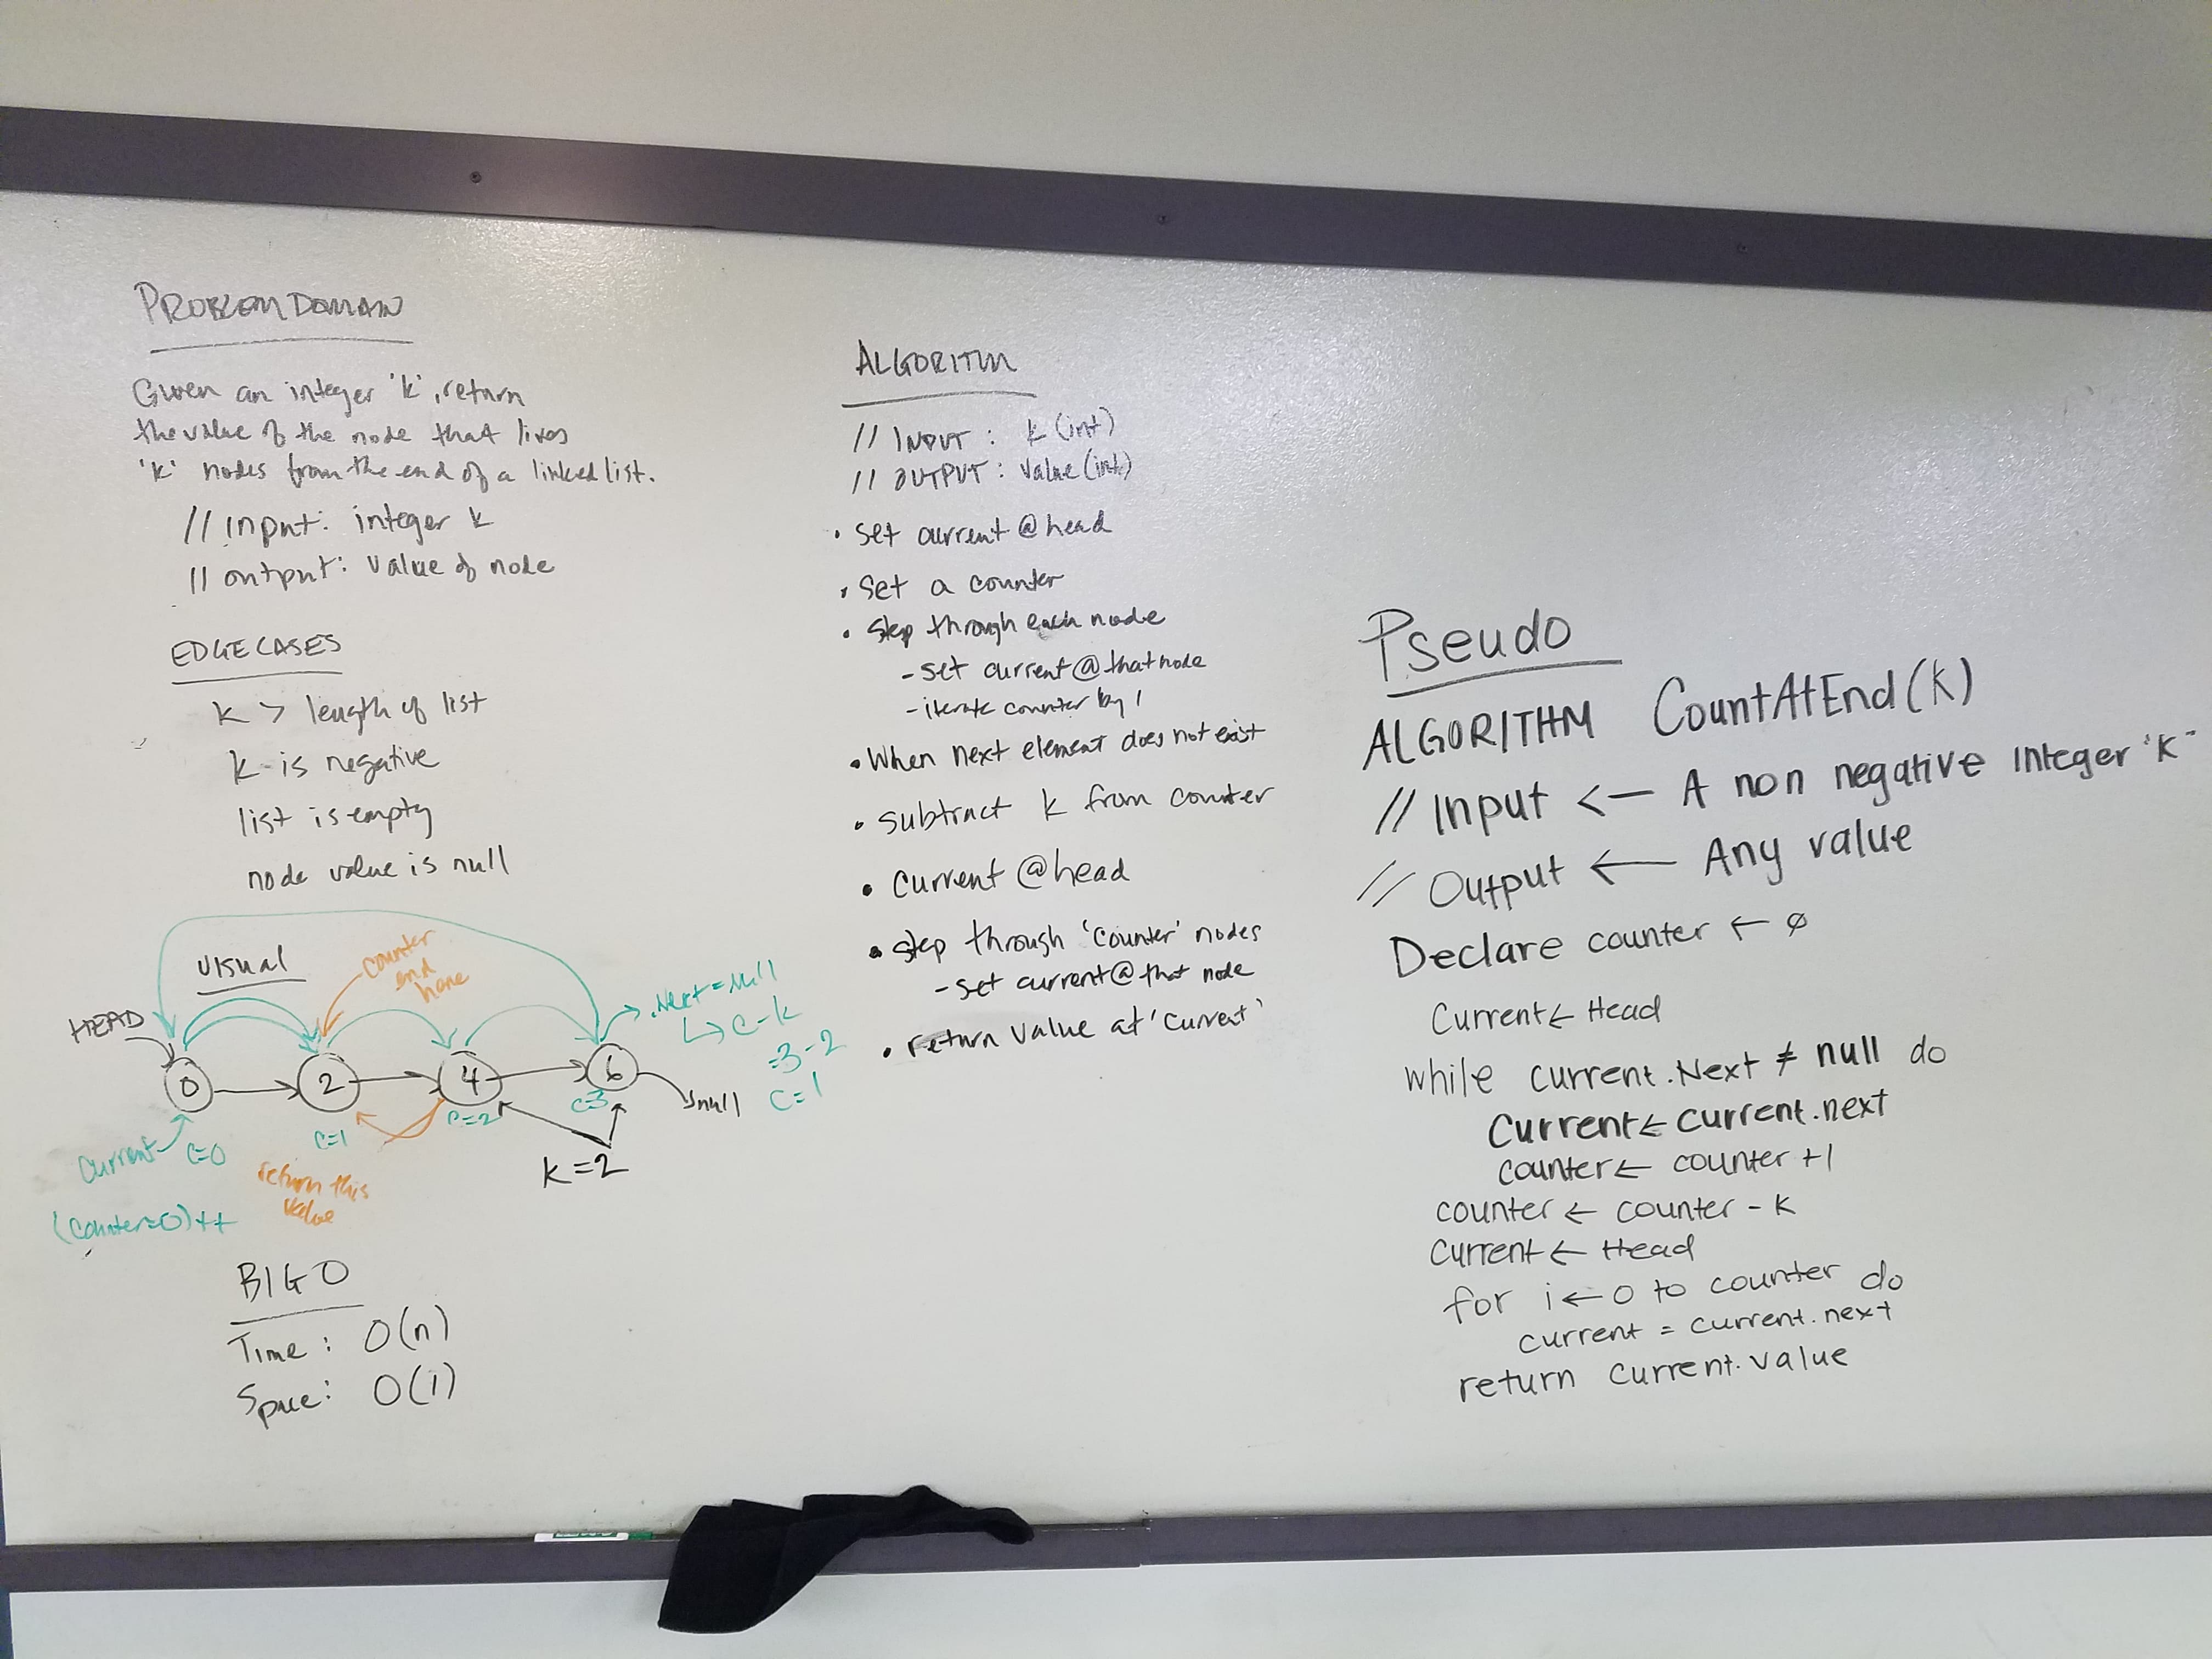 PROBLEM DOMAIN
Given an integer 'k', return
the value of the node that lives
'k' nodes from the end of a linked list.
// input: integer k
// output: value of node
EDGE CASES
k > length of list
k is negative
list is empty
node value is null
visual
counter
end
here
HEAD
0
2
4
6
null
.Next = Null
↳ c - k
= 3 - 2
c = 1
current
c=0
c=1
c=2
c=3
k = 2
return this
value
(counter=0)++
BIG O
Time: O(n)
Space: O(1)
ALGORITM
// INPUT: k (int)
// OUTPUT: value (int)
• set current @ head
• set a counter
• step through each node
- set current @ that node
- iterate counter by 1
• When next element does not exist
• subtract k from counter
• Current @ head
• step through 'counter' nodes
- set current @ that node
• return value at 'current'
Pseudo
ALGORITHM CountAtEnd(k)
// Input <— A non negative Integer 'k'
// Output <— Any value
Declare counter ← ø
Current ← Head
while current.Next ≠ null do
Current ← current.next
counter ← counter +1
counter ← counter - k
Current ← Head
for i ← 0 to counter do
current = current.next
return current.value